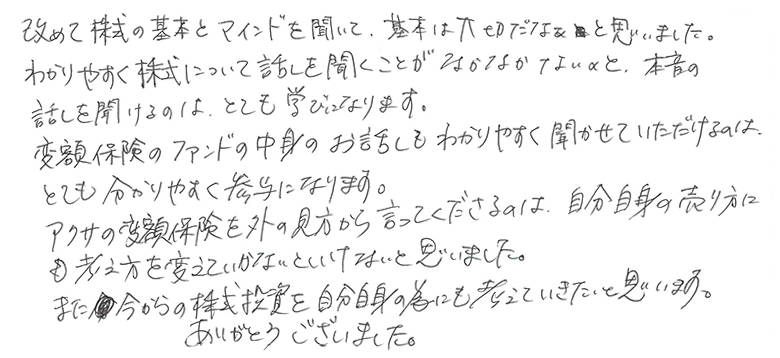 改めて株式の基本とマインドを聞いて、基本は大切だなぁと思いました。
わかりやすく株式について話しを聞くことがなかなかないのと、本音の
話しを聞けるのは、とても学びになります。
変額保険のファンドの中身のお話しもわかりやすく聞かせていただけるのは、
とても分かりやすく参考になります。
アクサの変額保険を外の見方から言ってくださるのは、自分自身の売り方に
も考え方を変えていかないといけないと思いました。
また今からの株式投資を自分自身の為にも考えていきたいと思います。
ありがとうございました。